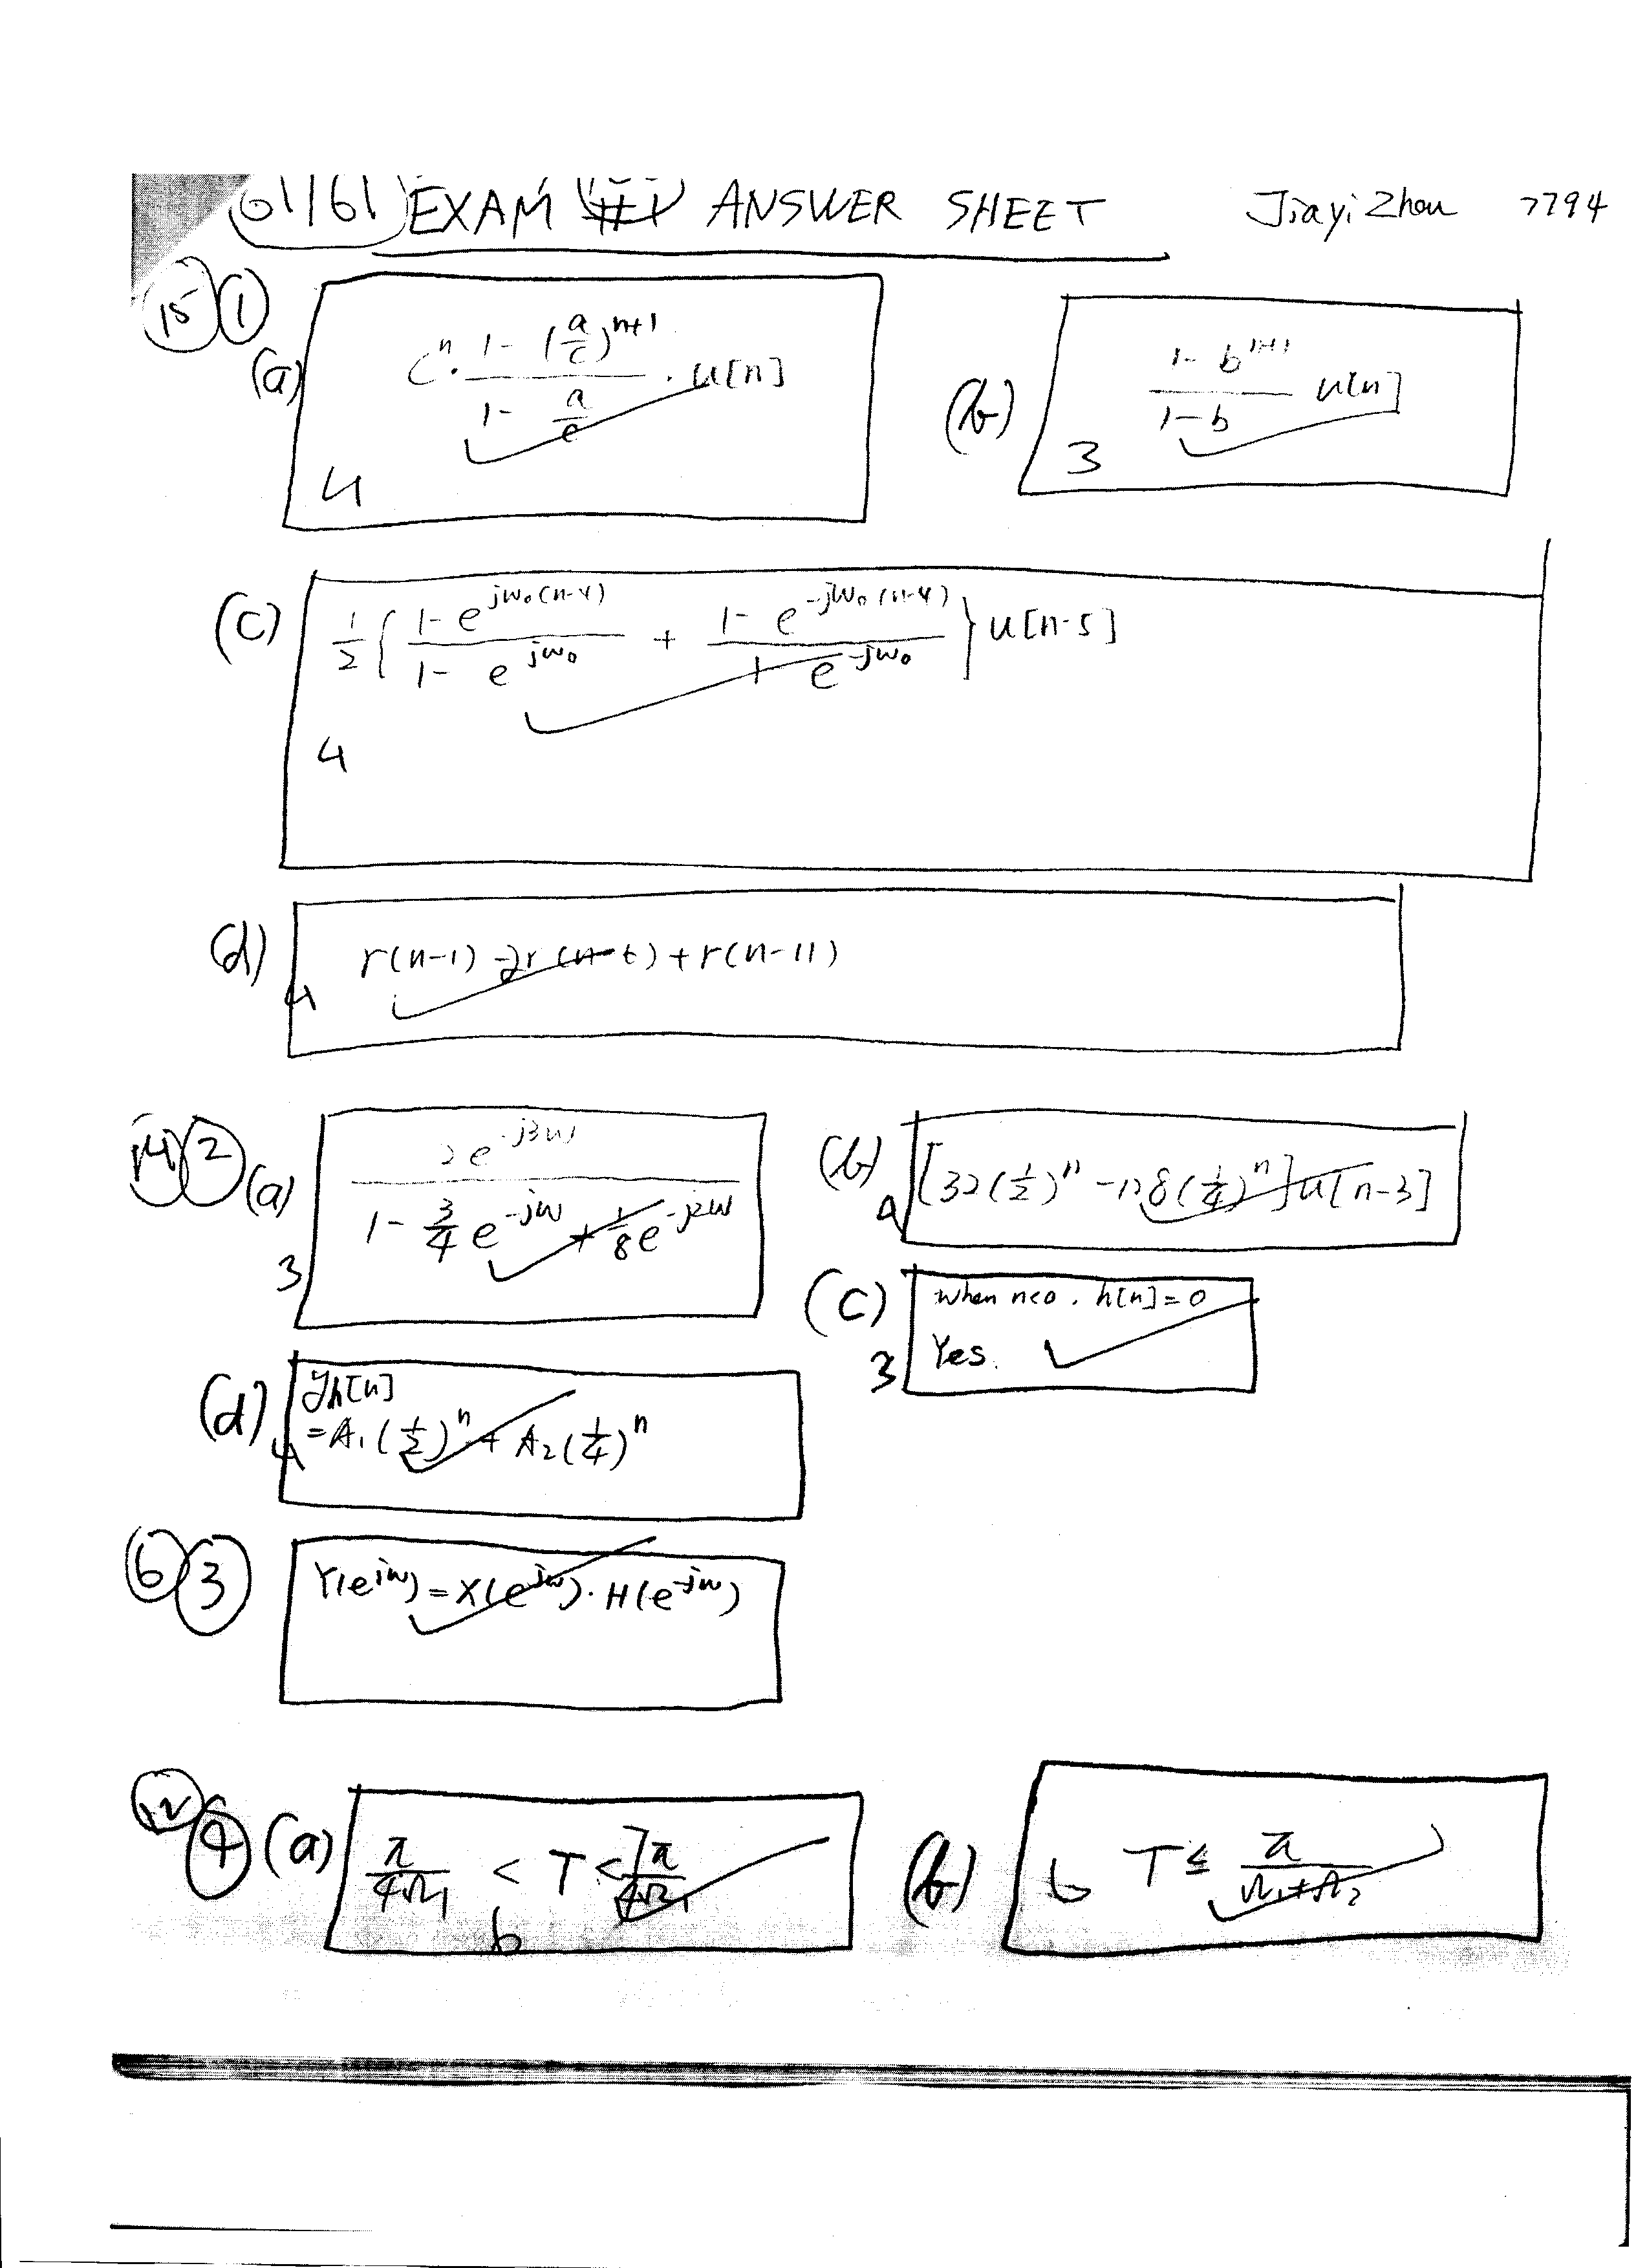 61/61 EXAM #1 ANSWER SHEET Jiayi Zhou 7794
15 1
(a) cⁿ · (1 - (a/c)^(n+1)) / (1 - a/c) · u[n]
4
(b) (1 - b^(n+1)) / (1 - b) u[n]
3
(c) 1/2 { (1 - e^(jω₀(n-4))) / (1 - e^(jω₀)) + (1 - e^(-jω₀(n-4))) / (1 - e^(-jω₀)) } u[n-5]
4
(d) r(n-1) - 2r(n-6) + r(n-11)
4
14 2
(a) 2e^(-j3ω) / (1 - 3/4 e^(-jω) + 1/8 e^(-j2ω))
3
(b) [32(1/2)ⁿ - 128(1/4)ⁿ] u[n-3]
4
(c) when n<0, h[n]=0
Yes.
3
(d) yh[n]
= A₁(1/2)ⁿ + A₂(1/4)ⁿ
4
6 3
Y(e^(jω)) = X(e^(jω)) · H(e^(-jω))
12 4
(a) π/4Ω₁ < T < 7π/4Ω₁
6
(b) T ≤ π/(Ω₁+Ω₂)
6